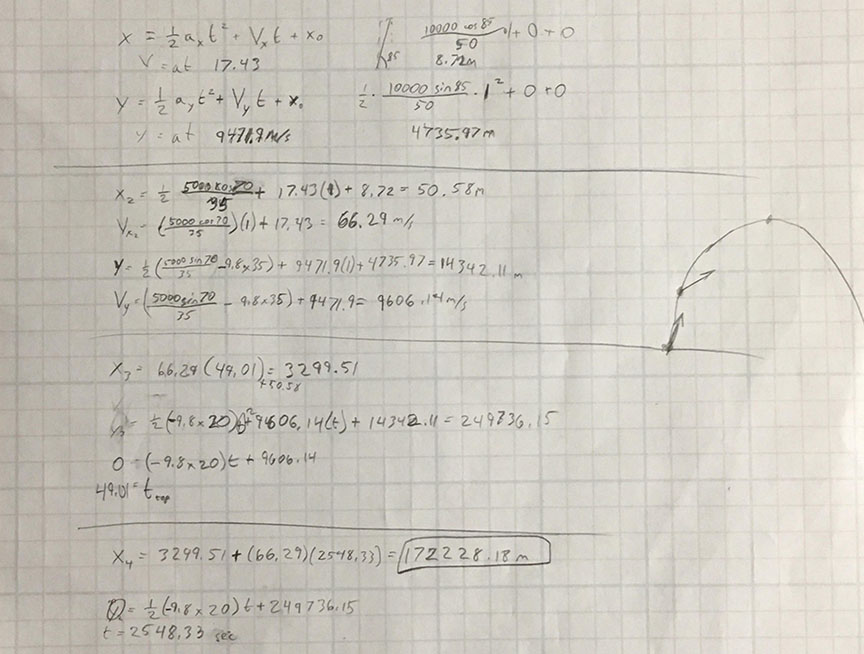 x = ½ aₓt² + Vₓt + x₀
V = at 17.43
y = ½ a_y t² + V_y t + x₀
y = at 9471.9 m/s
85
10000 cos 85 / 50 1 + 0 + 0
8.72m
½ · 10000 sin 85 / 50 · 1² + 0 + 0
4735.97 m
x₂ = ½ 5000 cos 70 / 35 + 17.43(1) + 8.72 = 50.58m
Vₓ₂ = (5000 cos 70 / 35)(1) + 17.43 = 66.29 m/s
y = ½ (5000 sin 70 / 35 - 9.8×35) + 9471.9(1) + 4735.97 = 14342.11 m
V_y = (5000 sin 70 / 35 - 9.8×35) + 9471.9 = 9606.14 m/s
x₃ = 66.29 (49.01) = 3299.51
+50.58
y₃ = ½(-9.8 × 20)t² + 9606.14(t) + 14342.11 = 249736.15
0 = (-9.8×20)t + 9606.14
49.01 = t top
x₄ = 3299.51 + (66.29)(2548.33) = 172228.18 m
0 = ½(-9.8 × 20) t + 249736.15
t = 2548.33 sec